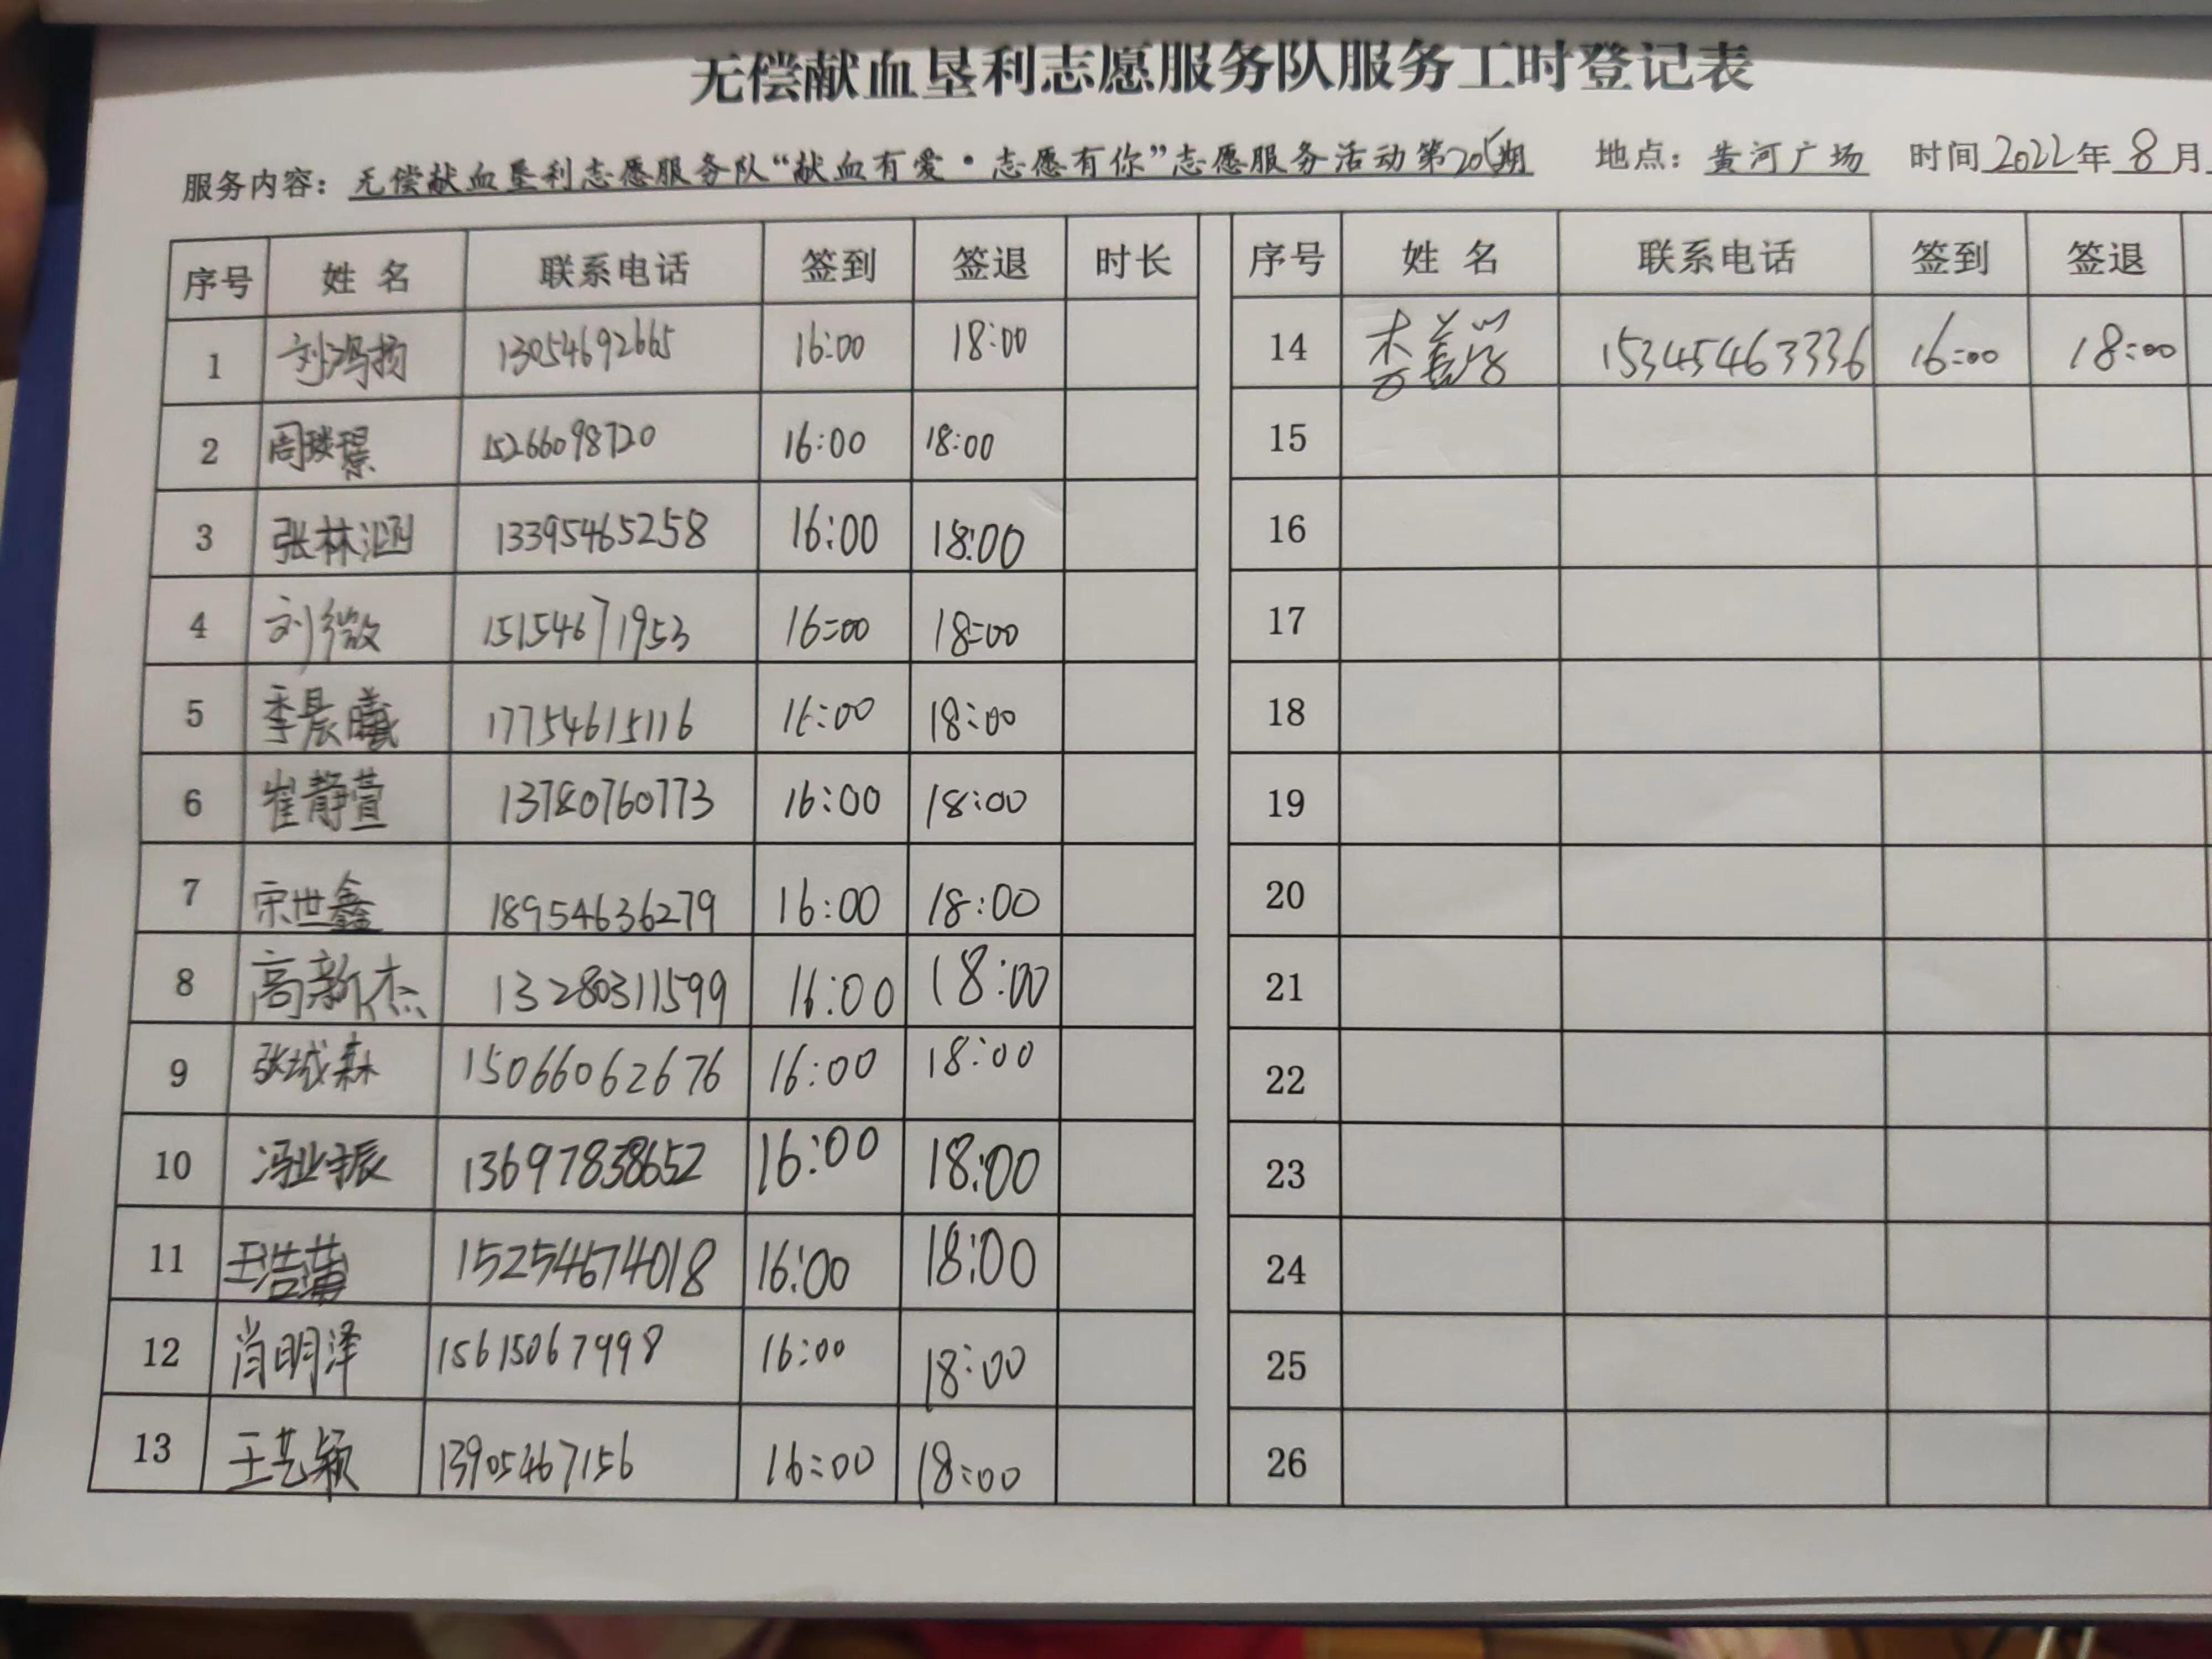 无偿献血垦利志愿服务队服务工时登记表
服务内容：无偿献血垦利志愿服务队“献血有爱·志愿有你”志愿服务活动第205期 地点：黄河广场 时间2022年8月
序号 姓名 联系电话 签到 签退 时长 序号 姓名 联系电话 签到 签退
1 刘鸿扬 13054692665 16:00 18:00 14 李善學 15345463336 16:00 18:00
2 周璟 15266098720 16:00 18:00 15
3 张林涵 13395465258 16:00 18:00 16
4 刘微 15154671953 16:00 18:00 17
5 季晨曦 17754615116 16:00 18:00 18
6 崔静萱 13780760773 16:00 18:00 19
7 宋世鑫 18954636279 16:00 18:00 20
8 高新杰 13280311599 16:00 18:00 21
9 张城森 15066062676 16:00 18:00 22
10 冯业振 13697838652 16:00 18:00 23
11 王浩 15254674018 16:00 18:00 24
12 肖明泽 15615067998 16:00 18:00 25
13 王艺颖 13905467156 16:00 18:00 26